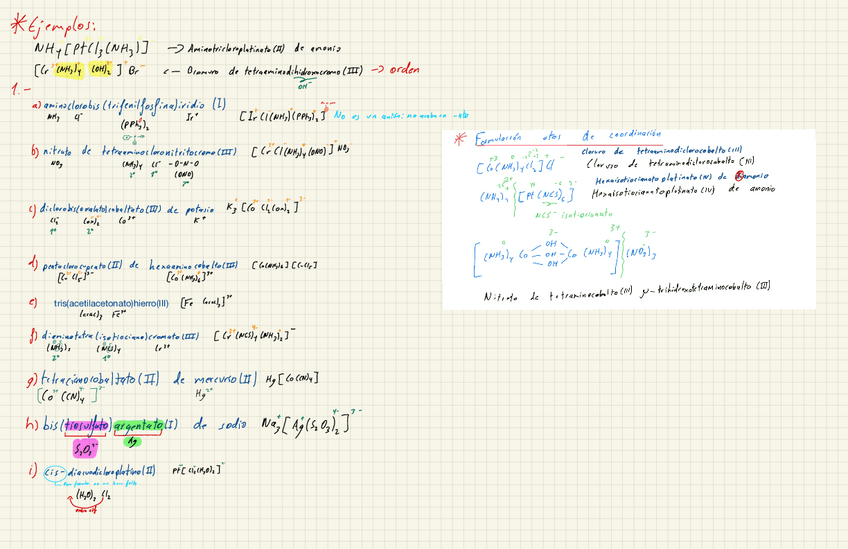 *Ejemplos:
NH4[PtCl3(NH3)] → Aminotricloroplatinato(II) de amonio
[Cr (NH3)4 (OH)2] Br ← Bromuro de tetraaminodihidroxocromo(III) → orden
OH-
1.-
a) aminoclorobis(trifenilfosfina)iridio (I) [Ir Cl(NH3)(PPh3)2] No es un anión: no acaba en ato
NH3 Cl- (PPh3)2 Ir+
b) nitrato de tetraaminocloronitritocromo(III) [Cr Cl(NH3)4(ONO)] NO3
NO3 (NH3)4 Cl- -O-N-O
(ONO)
c) diclorobis(oxalato)cobaltato(III) de potasio K3[Co Cl2(ox)2]3-
Cl2 (ox)2 Co3+ K+
1º 2º
d) pentaclorocuprato(II) de hexaaminocobalto(III) [Co(NH3)6][CuCl5]
[Cu Cl5]3- [Co(NH3)6]3+
e) tris(acetilacetonato)hierro(III) [Fe (acac)3]
(acac)3 Fe3+
f) diaminotetra(isotiociano)cromato(III) [Cr(NCS)4(NH3)2]-
(NH3)2 (NCS)4 Cr3+
2º 1º
g) tetracianocobaltato(II) de mercurio(II) Hg[Co(CN)4]
[Co(CN)4]2- Hg2+
h) bis(tiosulfato)argentato(I) de sodio Na3[Ag(S2O3)2]3-
S2O32- Ag
i) cis-diacuodicloroplatino(II) Pt[Cl2(H2O)2]
(H2O)2 Cl2
* Formulación otos de coordinación
cloruro de tetraaminodiclorocobalto(III)
[Co(NH3)4Cl2]Cl- Cloruro de tetraaminodiclorocobalto(III)
Hexaisotiocianatoplatinato(IV) de amonio
(NH4)2 [Pt(NCS)6]2- Hexaisotiocianatoplatinato(IV) de amonio
NCS- isotiocianato
3- 3+ 3-
OH
[(NH3)4 Co OH Co (NH3)4] (NO3)3
OH
Nitrato de tetraaminocobalto(III) μ-trihidroxotetraaminocobalto(III)